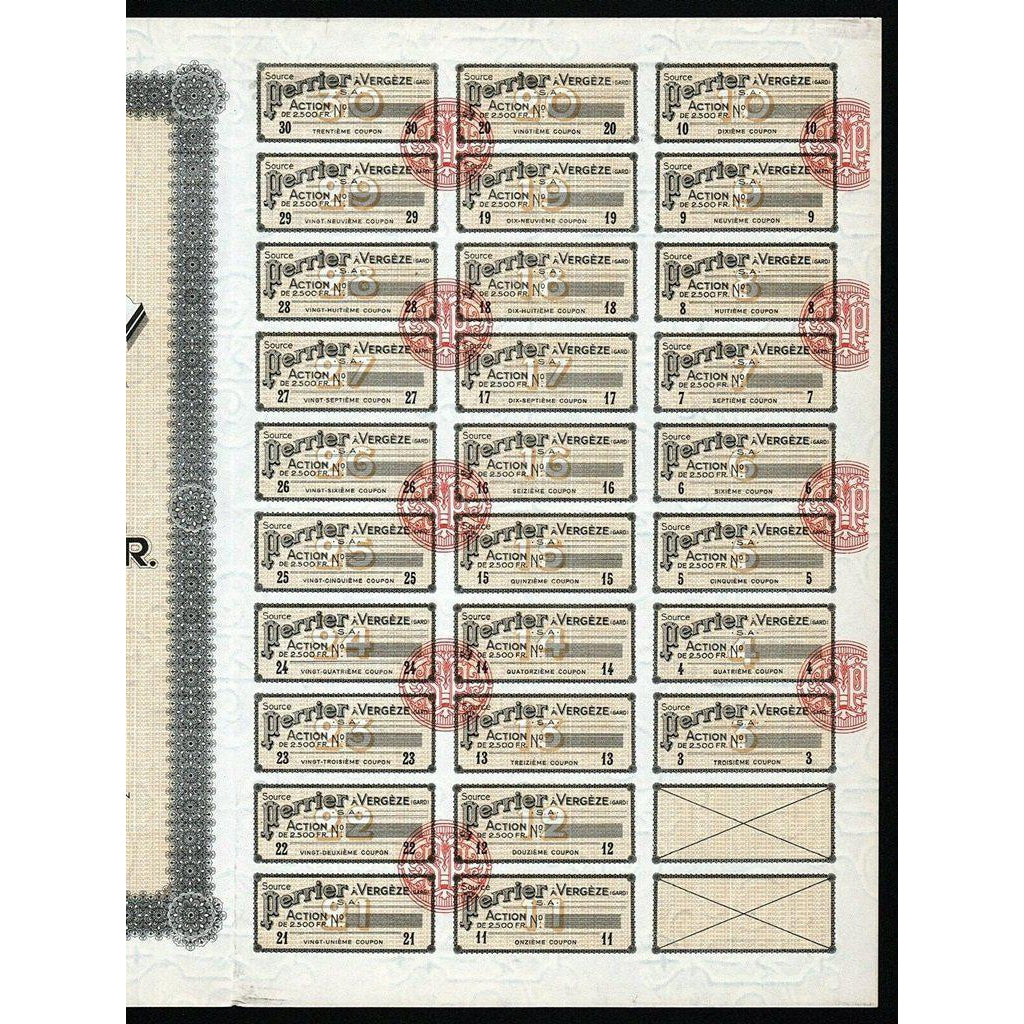 R.
Source Perrier À VERGÈZE (GARD)
S.A.
ACTION Nº
DE 2.500 FR.
30 TRENTIÈME COUPON 30
Source Perrier À VERGÈZE (GARD)
S.A.
ACTION Nº
DE 2.500 FR.
20 VINGTIÈME COUPON 20
Source Perrier À VERGÈZE (GARD)
S.A.
ACTION Nº
DE 2.500 FR.
10 DIXIÈME COUPON 10
Source Perrier À VERGÈZE (GARD)
S.A.
ACTION Nº
DE 2.500 FR.
29 VINGT-NEUVIÈME COUPON 29
Source Perrier À VERGÈZE (GARD)
S.A.
ACTION Nº
DE 2.500 FR.
19 DIX-NEUVIÈME COUPON 19
Source Perrier À VERGÈZE (GARD)
S.A.
ACTION Nº
DE 2.500 FR.
9 NEUVIÈME COUPON 9
Source Perrier À VERGÈZE (GARD)
S.A.
ACTION Nº
DE 2.500 FR.
28 VINGT-HUITIÈME COUPON 28
Source Perrier À VERGÈZE (GARD)
S.A.
ACTION Nº
DE 2.500 FR.
18 DIX-HUITIÈME COUPON 18
Source Perrier À VERGÈZE (GARD)
S.A.
ACTION Nº
DE 2.500 FR.
8 HUITIÈME COUPON 8
Source Perrier À VERGÈZE (GARD)
S.A.
ACTION Nº
DE 2.500 FR.
27 VINGT-SEPTIÈME COUPON 27
Source Perrier À VERGÈZE (GARD)
S.A.
ACTION Nº
DE 2.500 FR.
17 DIX-SEPTIÈME COUPON 17
Source Perrier À VERGÈZE (GARD)
S.A.
ACTION Nº
DE 2.500 FR.
7 SEPTIÈME COUPON 7
Source Perrier À VERGÈZE (GARD)
S.A.
ACTION Nº
DE 2.500 FR.
26 VINGT-SIXIÈME COUPON 26
Source Perrier À VERGÈZE (GARD)
S.A.
ACTION Nº
DE 2.500 FR.
16 SEIZIÈME COUPON 16
Source Perrier À VERGÈZE (GARD)
S.A.
ACTION Nº
DE 2.500 FR.
6 SIXIÈME COUPON 6
Source Perrier À VERGÈZE (GARD)
S.A.
ACTION Nº
DE 2.500 FR.
25 VINGT-CINQUIÈME COUPON 25
Source Perrier À VERGÈZE (GARD)
S.A.
ACTION Nº
DE 2.500 FR.
15 QUINZIÈME COUPON 15
Source Perrier À VERGÈZE (GARD)
S.A.
ACTION Nº
DE 2.500 FR.
5 CINQUIÈME COUPON 5
Source Perrier À VERGÈZE (GARD)
S.A.
ACTION Nº
DE 2.500 FR.
24 VINGT-QUATRIÈME COUPON 24
Source Perrier À VERGÈZE (GARD)
S.A.
ACTION Nº
DE 2.500 FR.
14 QUATORZIÈME COUPON 14
Source Perrier À VERGÈZE (GARD)
S.A.
ACTION Nº
DE 2.500 FR.
4 QUATRIÈME COUPON 4
Source Perrier À VERGÈZE (GARD)
S.A.
ACTION Nº
DE 2.500 FR.
23 VINGT-TROISIÈME COUPON 23
Source Perrier À VERGÈZE (GARD)
S.A.
ACTION Nº
DE 2.500 FR.
13 TREIZIÈME COUPON 13
Source Perrier À VERGÈZE (GARD)
S.A.
ACTION Nº
DE 2.500 FR.
3 TROISIÈME COUPON 3
Source Perrier À VERGÈZE (GARD)
S.A.
ACTION Nº
DE 2.500 FR.
22 VINGT-DEUXIÈME COUPON 22
Source Perrier À VERGÈZE (GARD)
S.A.
ACTION Nº
DE 2.500 FR.
12 DOUZIÈME COUPON 12
Source Perrier À VERGÈZE (GARD)
S.A.
ACTION Nº
DE 2.500 FR.
21 VINGT-UNIÈME COUPON 21
Source Perrier À VERGÈZE (GARD)
S.A.
ACTION Nº
DE 2.500 FR.
11 ONZIÈME COUPON 11